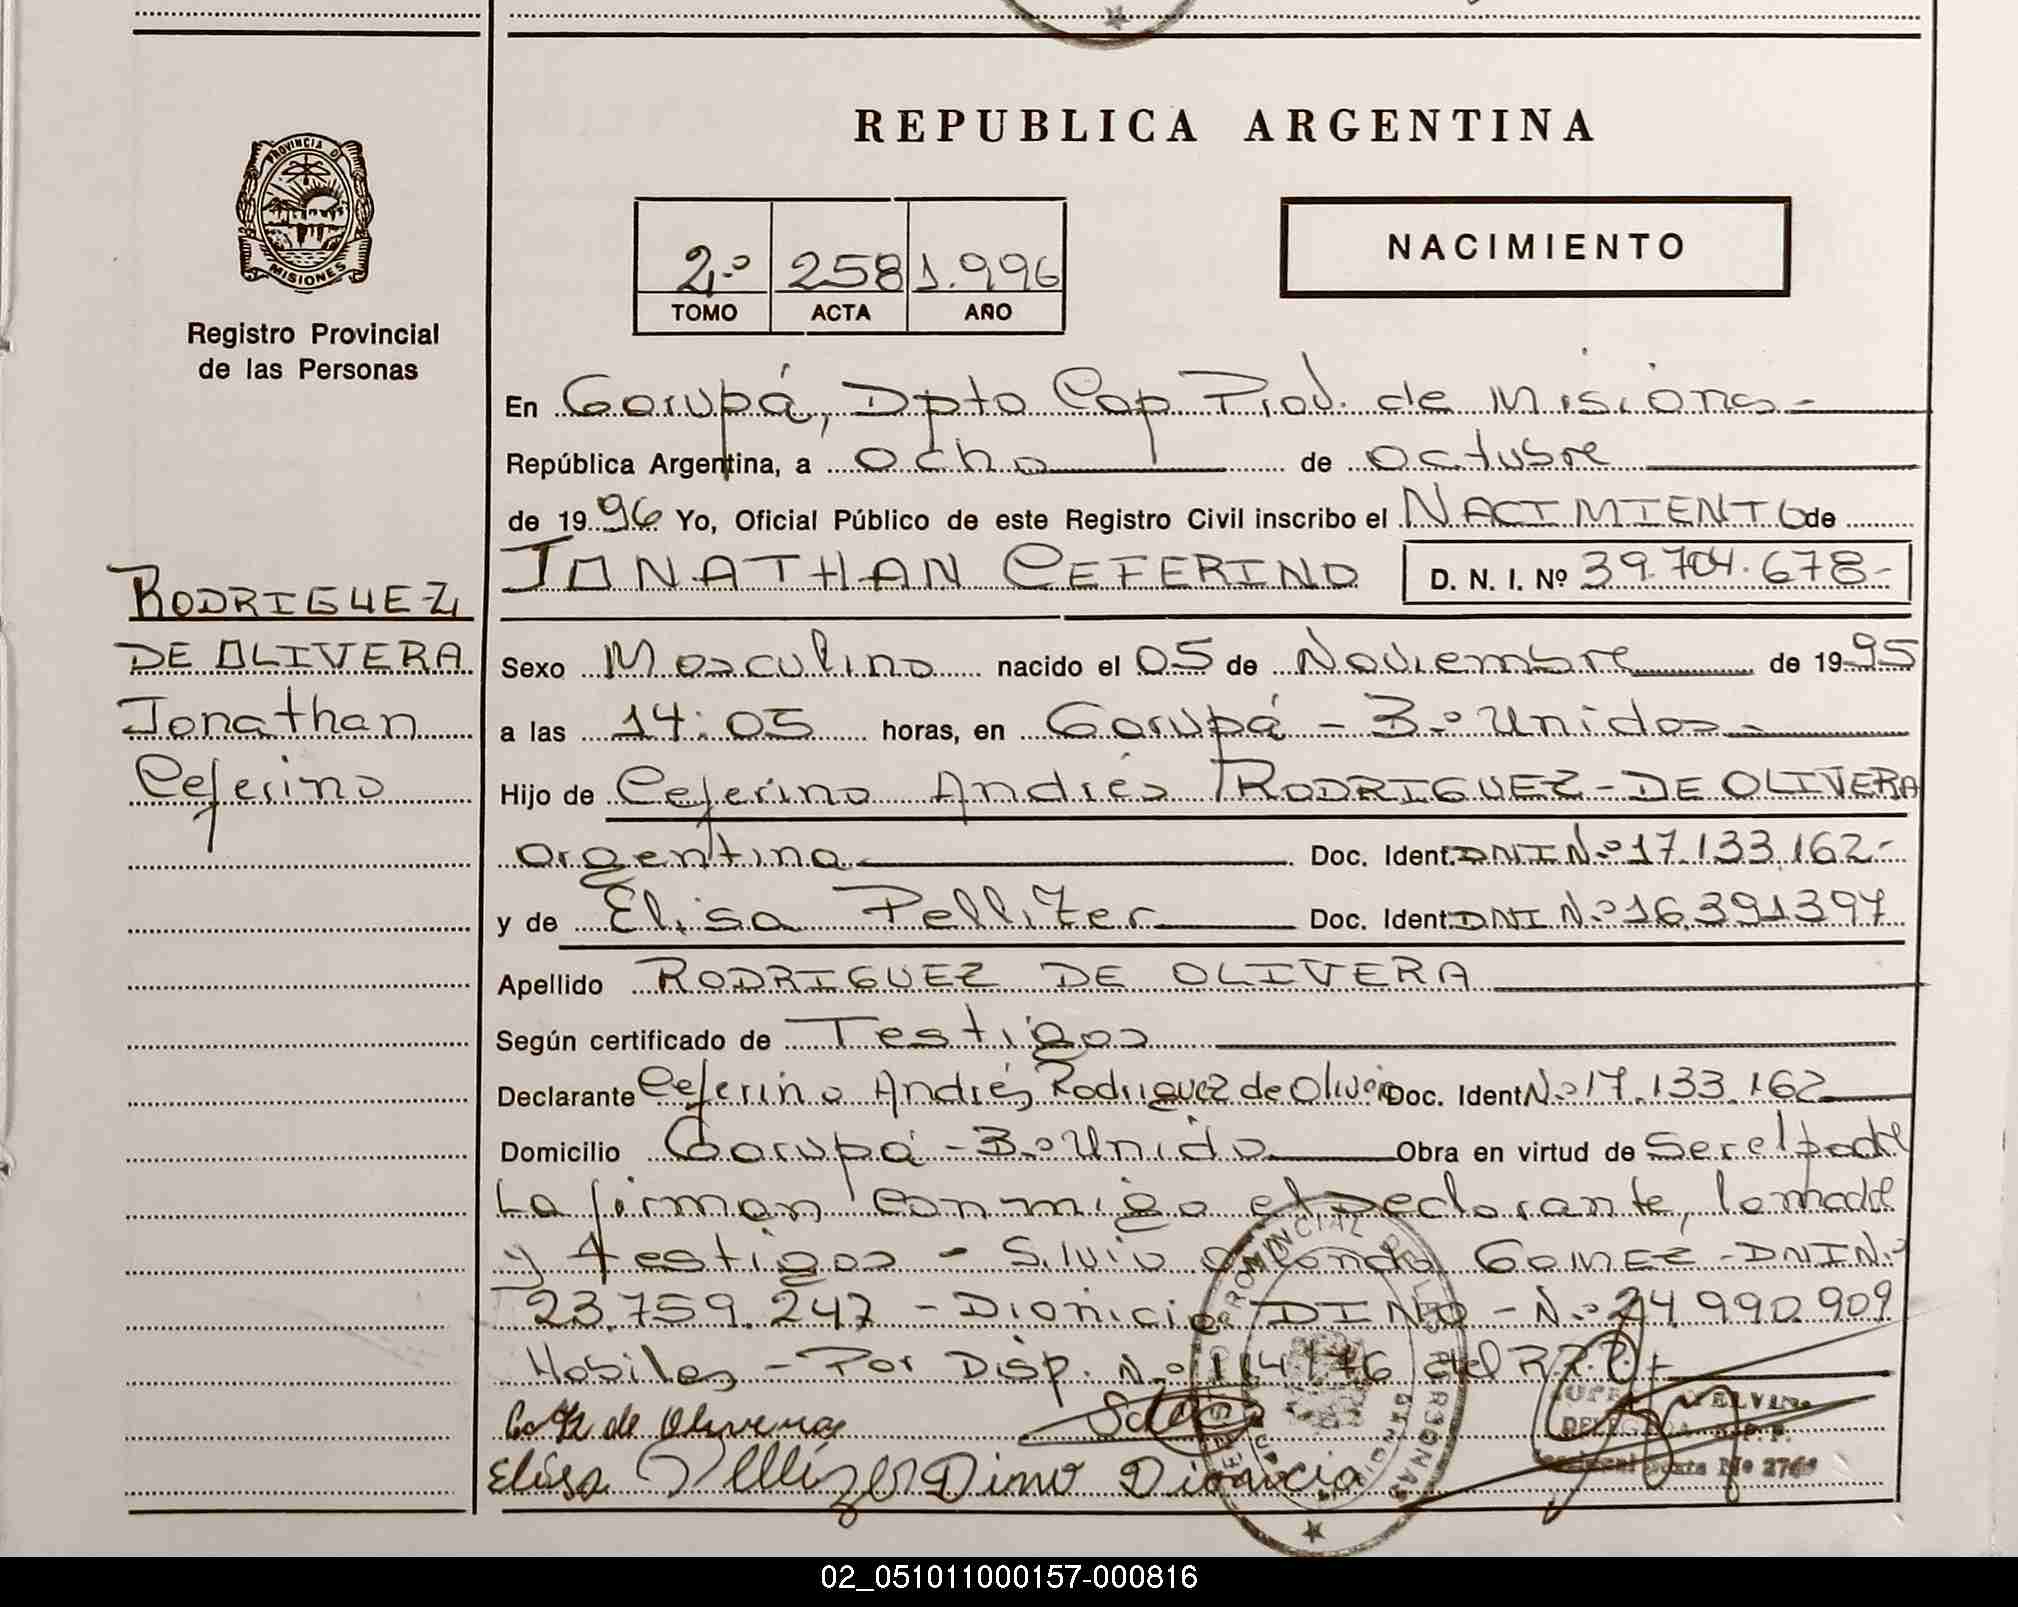 REPUBLICA ARGENTINA
PROVINCIA DE
MISIONES
Registro Provincial
de las Personas
NACIMIENTO
2º 258 1.996
TOMO ACTA AÑO
En Garupá, Dpto Cap Prov. de Misiones-
República Argentina, a ocho de octubre
de 1996 Yo, Oficial Público de este Registro Civil inscribo el NACIMIENTO de
JONATHAN CEFERINO D. N. I. Nº 39.704.678-
RODRIGUEZ
DE OLIVERA
Jonathan
Ceferino
Sexo Masculino nacido el 05 de Noviembre de 1995
a las 14:05 horas, en Garupá - Bº Unidos-
Hijo de Ceferino Andrés RODRIGUEZ-DE OLIVERA
argentina Doc. Ident. DNI Nº 17.133.162-
y de Elisa Pellizer Doc. Ident. DNI Nº 16.391397
Apellido RODRIGUEZ DE OLIVERA
Según certificado de Testigos
Declarante Ceferino Andrés Rodriguez de Olivera Doc. Ident Nº 17.133.162
Domicilio Garupá - Bº Unido Obra en virtud de Ser el padre
La firman conmigo el Declarante, la madre
y testigos - Silvio GOMEZ - DNI Nº
23.759.247 - Dionicio DINO - Nº 24.990.909
Habiles - Por Disp. Nº 114/76 del R.P.P.
de Olivera
Elisa Pellizer Dino Dionicio
DELEGADA R.P.P.
Nº 276
02_051011000157-000816